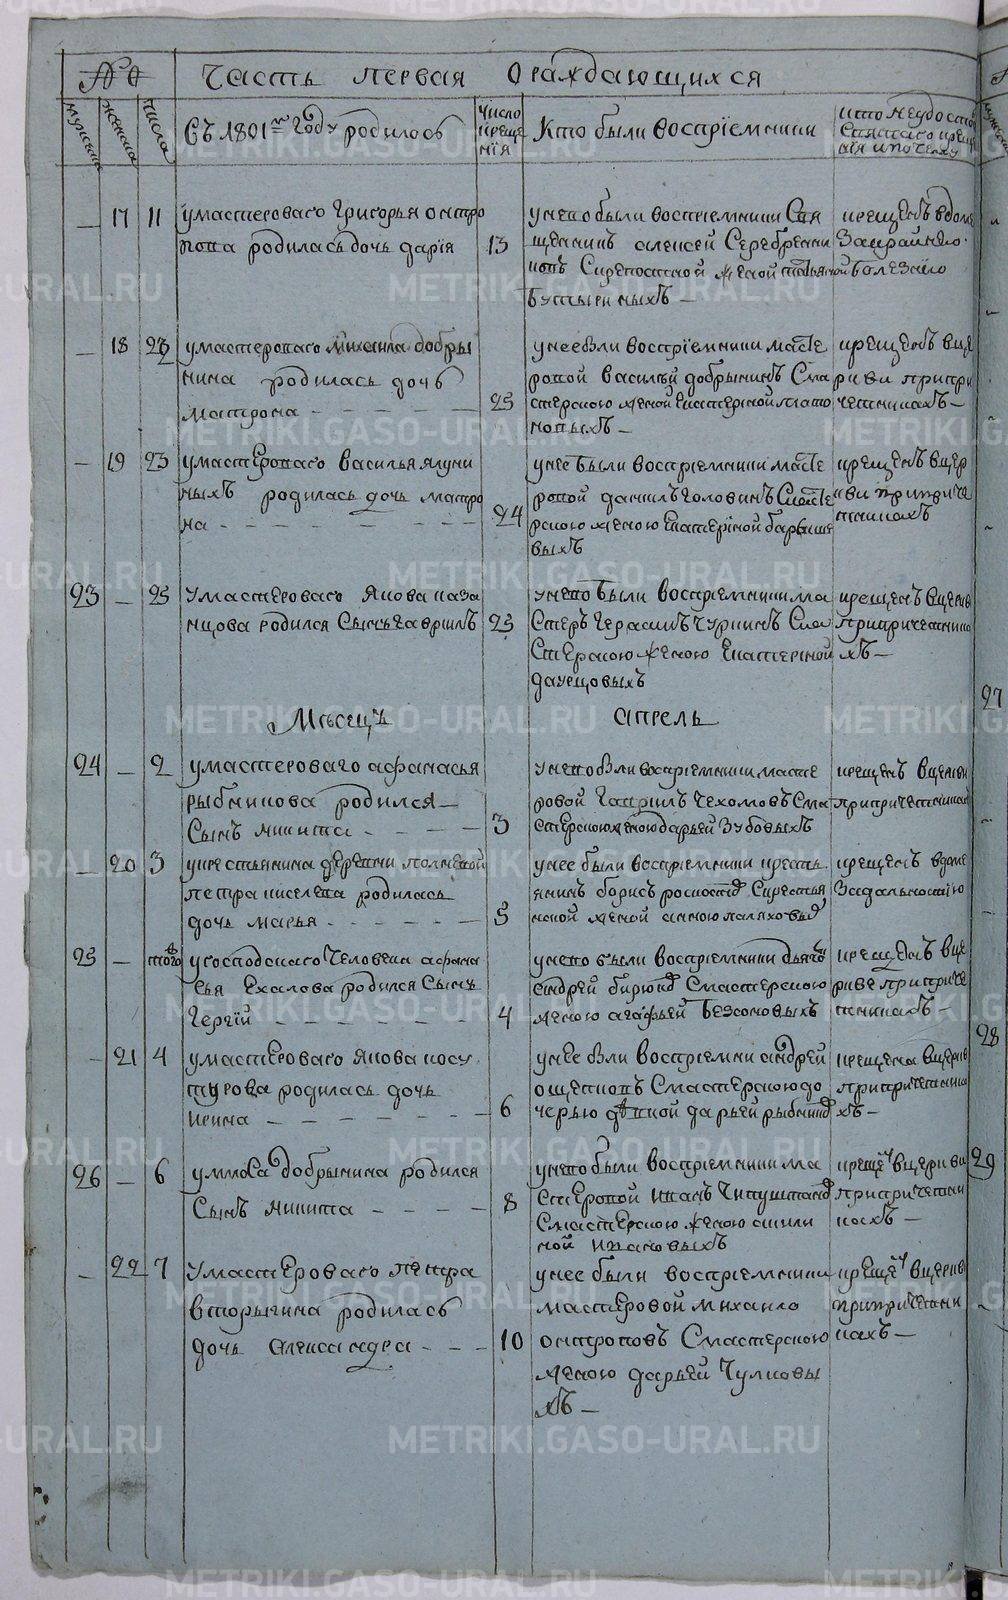 № Часть первая О раждающихся
мужеска женска числа Въ 1801м Году родилось число крещения Кто были восприемники
17 11 у мастероваго Григорья остро
пова родилась дочь дария 13
у него были восприемники Свя
щенникъ алексей Серебренни
ковъ женой
бутыриныхъ
крещенъ в доме
за крайнею
болезнию
18 23 у мастероваго михаила добры
нина родилась дочь
матрона 25
у нее были восприемники масте
ровой василей добрынинъ с ма
стерскою женой екатериной плато
новыхъ
крещенъ в це
ркви при при
четникахъ
19 23 у мастероваго василья
ныхъ родилась дочь матро
на 24
у нее были восприемники масте
ровой данилъ головинъ с масте
рскою женою екатериной барыше
выхъ
крещенъ в цер
кви при приче
тникахъ
23 25 у мастероваго якова каза
нцова родился сынъ гавриилъ 25
у него были восприемники ма
стеръ герасимъ чуркинъ с ма
стерскою женою екатериной
даурцовыхъ
крещенъ в церкви
при причетника
хъ
Месецъ апрель
24 2 у мастероваго афанасья
рыбникова родился
сынъ никита 3
у него были восприемники масте
ровой гаврилъ чехомовъ с ма
стерскою женою дарьей зубовыхъ
крещенъ в церкви
при причетникахъ
20 3 у крестьянина деревни полневой
петра киселева родилась
дочь марья 5
у нее были восприемники кресть
янинъ борисъ с крестья
нской женой анною паляховыхъ
крещенъ в доме
за дальностию
25 того у господскаго человека афана
сья ехалова родился сынъ
гергий 4
у него были восприемники дьячекъ
андрей с мастерскою
женою агафьей безсоновыхъ
крещенъ в це
ркве при приче
тникахъ
21 4 у мастероваго якова косу
турова родилась дочь
ирина 6
у нее были восприемники андрей
ощепковъ с мастерскою до
черью девкой дарьей рыбниковыхъ
крещена в церкви
при причетника
хъ
26 6 у добрынина родился
сынъ никита 8
у него были восприемники ма
стеровой иванъ
с мастерскою женою акили
ной ивановыхъ
крещенъ в церкви
при причетни
кахъ
22 7 у мастероваго петра
вторыгина родилась
дочь александра 10
у нее были восприемники
мастеровой михаило
остроповъ с мастерскою
женою дарьей чулковы
хъ
крещенъ в церкви
при причетни
кахъ
27
28
29
METRIKI.GASO-URAL.RU